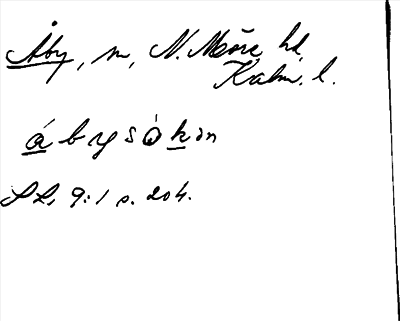 Åby, m, N. Möre hd,
Kalm. l.
ábysòkən
SL, 9:1 s. 204.